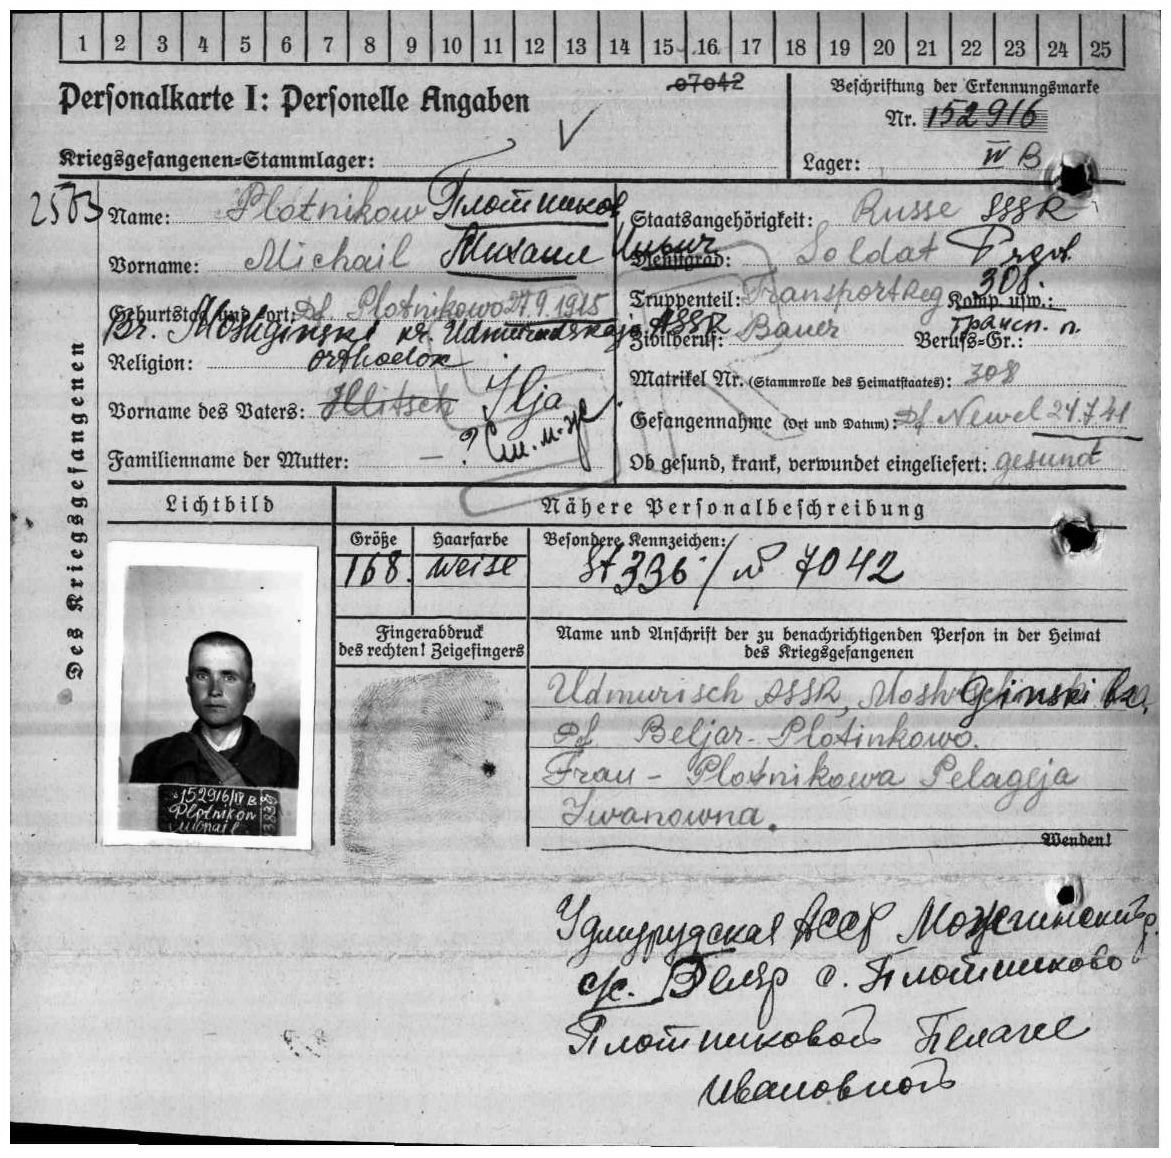 1 2 3 4 5 6 7 8 9 10 11 12 13 14 15 16 17 18 19 20 21 22 23 24 25
07042
Personalkarte I: Personelle Angaben
Beschriftung der Erkennungsmarke
Nr. 152916
Kriegsgefangenen-Stammlager:
Lager: IV B
Des Kriegsgefangenen
Name: Plotnikow Плотников
Staatsangehörigkeit: Russe SSSR
Vorname: Michail Михаил Ильич
Dienstgrad: Soldat
Geburtstag und -ort: Df. Plotnikowo 27.9.1915
Truppenteil: Transportreg Komp. usw.: 308.
Br. Moshginski kr. Udmurdskaja ASSR
Трансп. п.
Zivilberuf: Bauer Berufs-Gr.:
Religion: orthodox
Matrikel Nr. (Stammrolle des Heimatstaates): 308
Vorname des Vaters: Illitsch Ilja
Gefangennahme (Ort und Datum): Df Newel 24.7.41
Familienname der Mutter: — ?
Ob gesund, krank, verwundet eingeliefert: gesund
Lichtbild
Nähere Personalbeschreibung
Größe
168.
Haarfarbe
weise
Besondere Kennzeichen:
St 336 / № 7042
Fingerabdruck
des rechten! Zeigefingers
Name und Anschrift der zu benachrichtigenden Person in der Heimat
des Kriegsgefangenen
Udmurisch ASSR, Moshginski
Df Beljar-Plotinkowo.
Frau - Plotnikowa Pelageja
Iwanowna.
Wenden!
152916/IV B
Plotnikow
Michail
Удмурудская АССР Можгинский р.
с/с. Беляр с. Плотниково
Плотниковой Пелагее
Ивановной